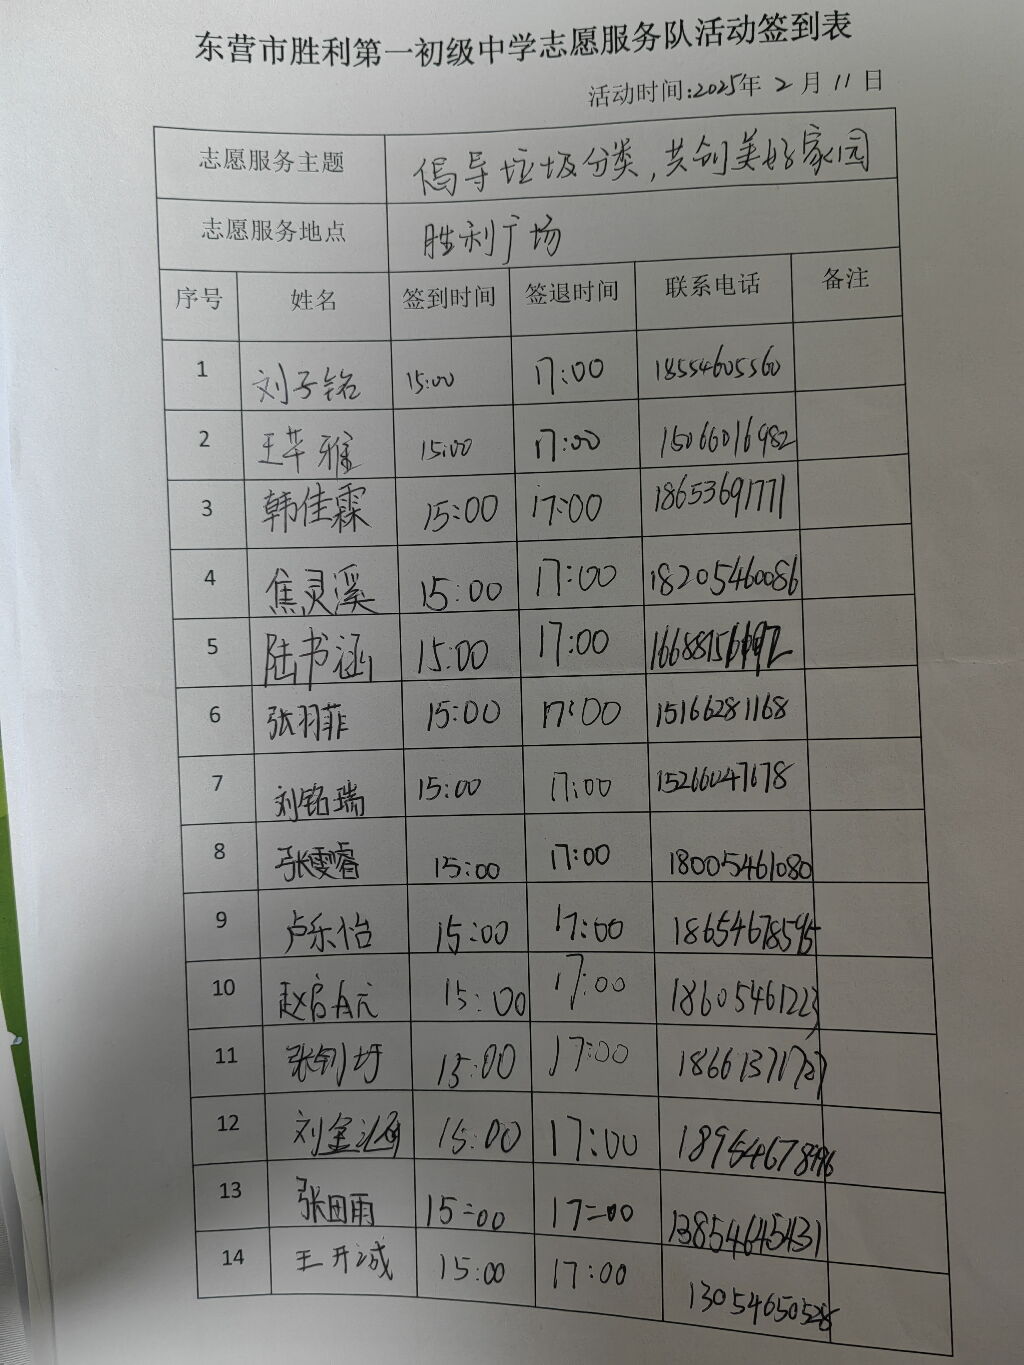 东营市胜利第一初级中学志愿服务队活动签到表
活动时间:2025年 2 月 11 日
志愿服务主题 倡导垃圾分类,共创美好家园
志愿服务地点 胜利广场
序号 姓名 签到时间 签退时间 联系电话 备注
1 刘子铭 15:00 17:00 18554605560
2 王芊雅 15:00 17:00 15066016982
3 韩佳霖 15:00 17:00 18653691771
4 焦灵溪 15:00 17:00 18205460086
5 陆书涵 15:00 17:00
6 张羽菲 15:00 17:00 15166281168
7 刘铭瑞 15:00 17:00 15266047678
8 张雯睿 15:00 17:00 18005461080
9 卢乐怡 15:00 17:00 18654678545
10 赵启元 15:00 17:00 18605461223
11 15:00 17:00
12 刘金涵 15:00 17:00
13 张田雨 15:00 17:00 13854645431
14 王开诚 15:00 17:00 13054650528